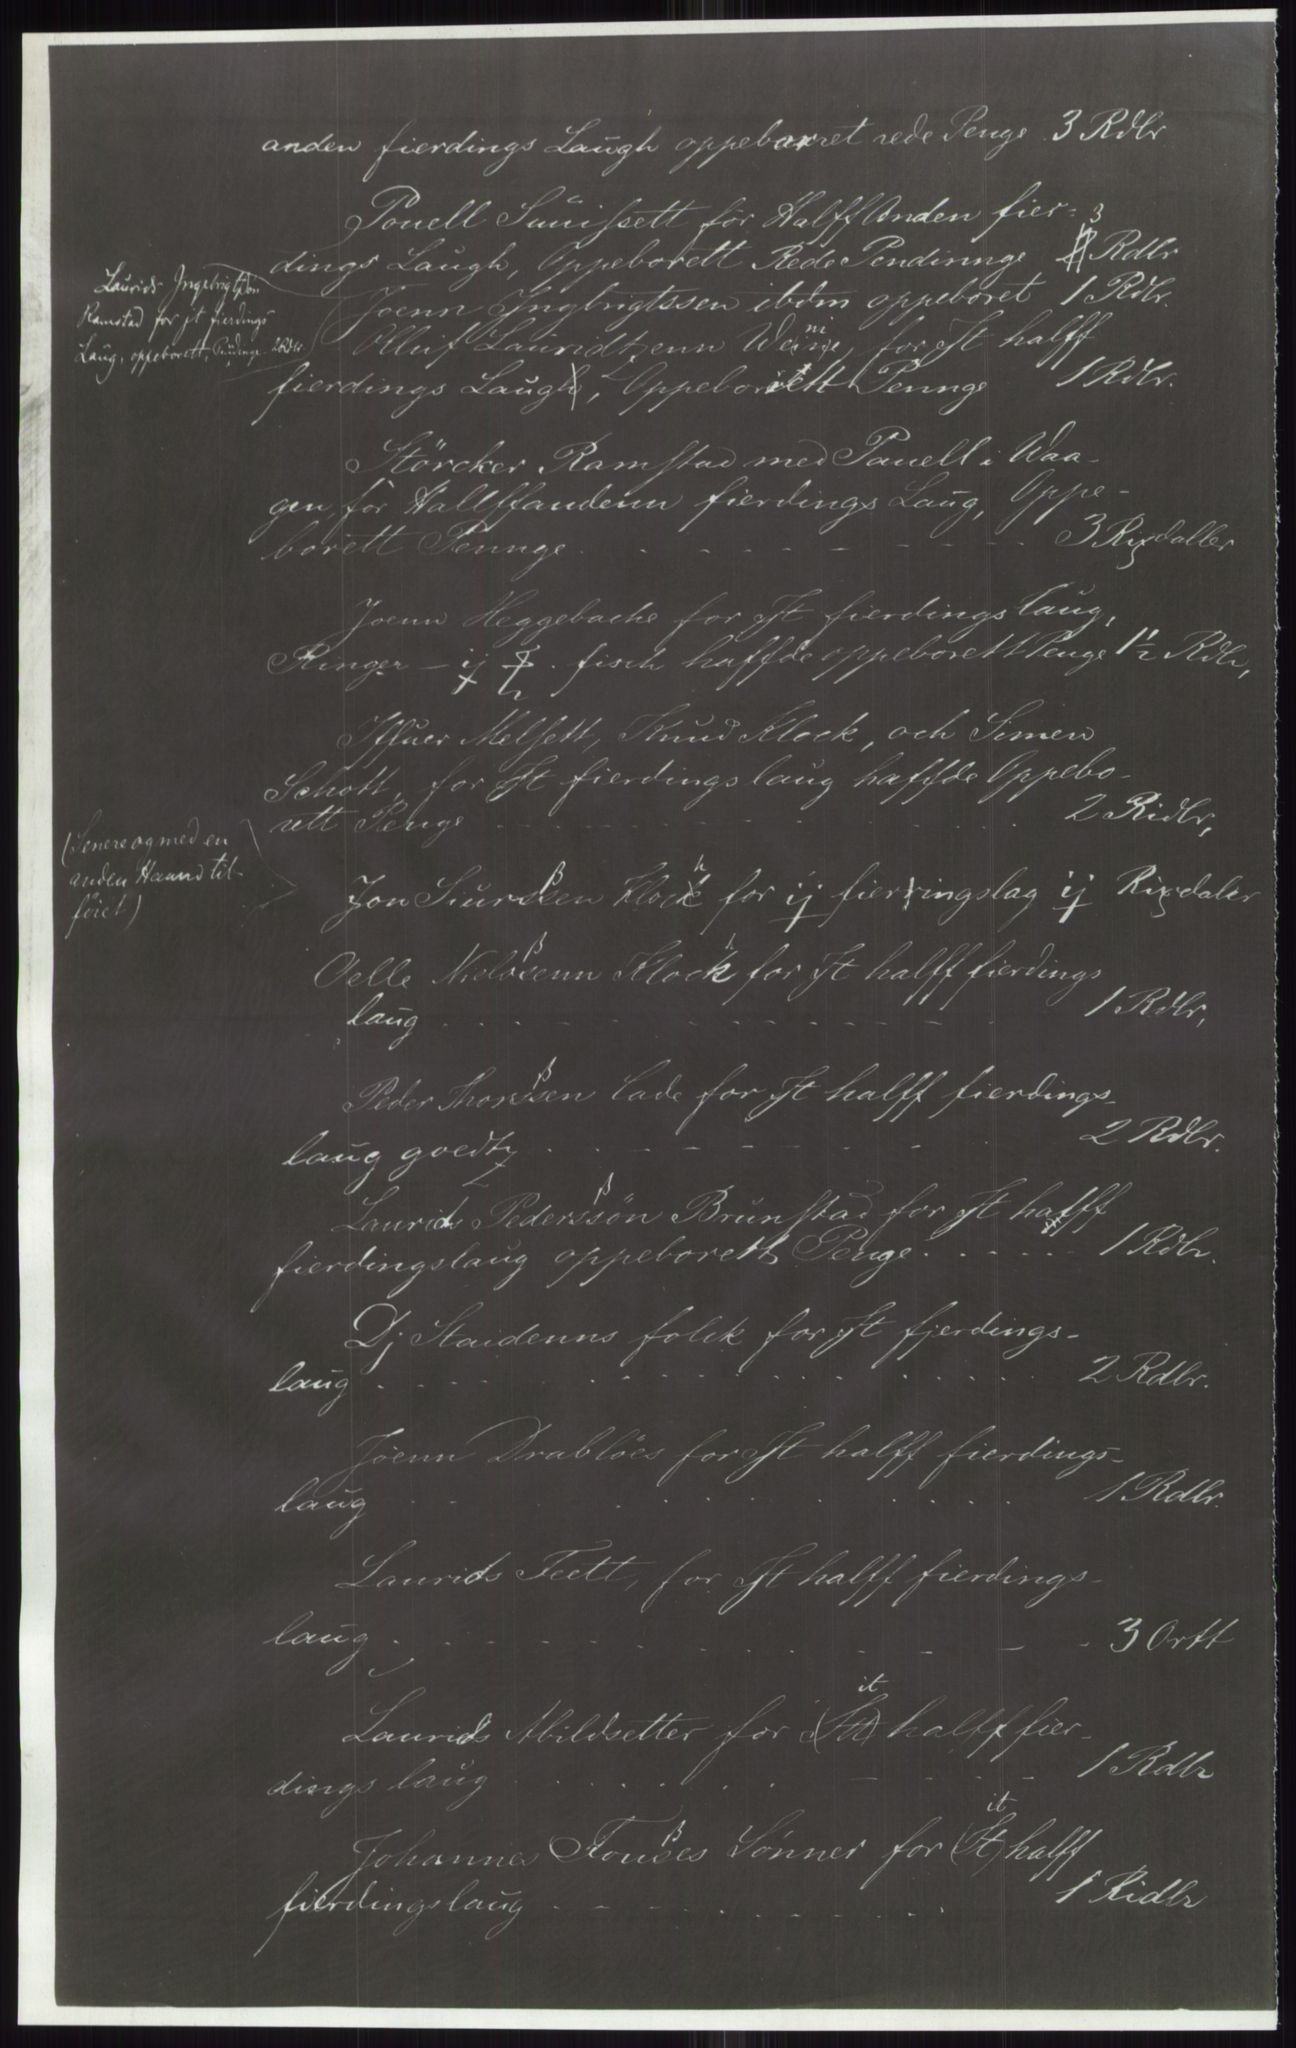 anden fierdings Laugh oppebaret rede Penge 3 Rdlr
Pouell Suuissett for Halff Anden fier= 3
dings Laugh, Oppeborett Rede Pendinnge Rdlr
Laurids Ingebrigtsøn
Ramstad for jt fierdings
Laug, oppeborett, Pendinge 2 Rdlr
Joenn Ingbrigtssen ibdm oppeboret 1 Rdlr.
Olluf Lauridtzenn for Jt halff
fierdings Laugh, Oppeborett Pennge 1 Rdlr.
Störcker Ramstad med Pouell i Waa-
gen for Hallffandenn fierdings Laug, Oppe-
borett Pennge 3 Rixdaller
Joenn Heggebache for Jt fierdings laug,
Penger - ij fisch haffde oppeborett Penge 1½ Rdlr,
Iffuer Melsett, Knud Klock, och Simen
Schott, for Jt fierdings laug haffde Oppebo-
rett Penge 2 Ridlr,
(Senere og med en
anden Haand til-
føiet)
Jon Siurssen Klock for ij fierringslag ij Rixdaler
Oelle Nielssenn Klock for Jt halff fierdings
laug 1 Rdlr,
Peder Thorssen Lade for Jt halff fierdings-
laug goedtz 2 Rdlr.
Laurids Pederssön Brunstad for Jt halff
fierdingslaug oppeborett Penge 1 Rdlr.
Dj Staidenns folck for Jt fjerdings-
laug 2 Rdlr.
Joenn Drabløes for Jt halff fierdings-
laug 1 Rdlr.
Laurids Fett, for Jt halff fierdings-
laug 3 Ortt
Laurids Abildsetter for (Jt) it halff fier-
dings laug 1 Rdlr
Johannes Fousses Sønner for (Jt) it halff
fierdingslaug 1 Ridlr